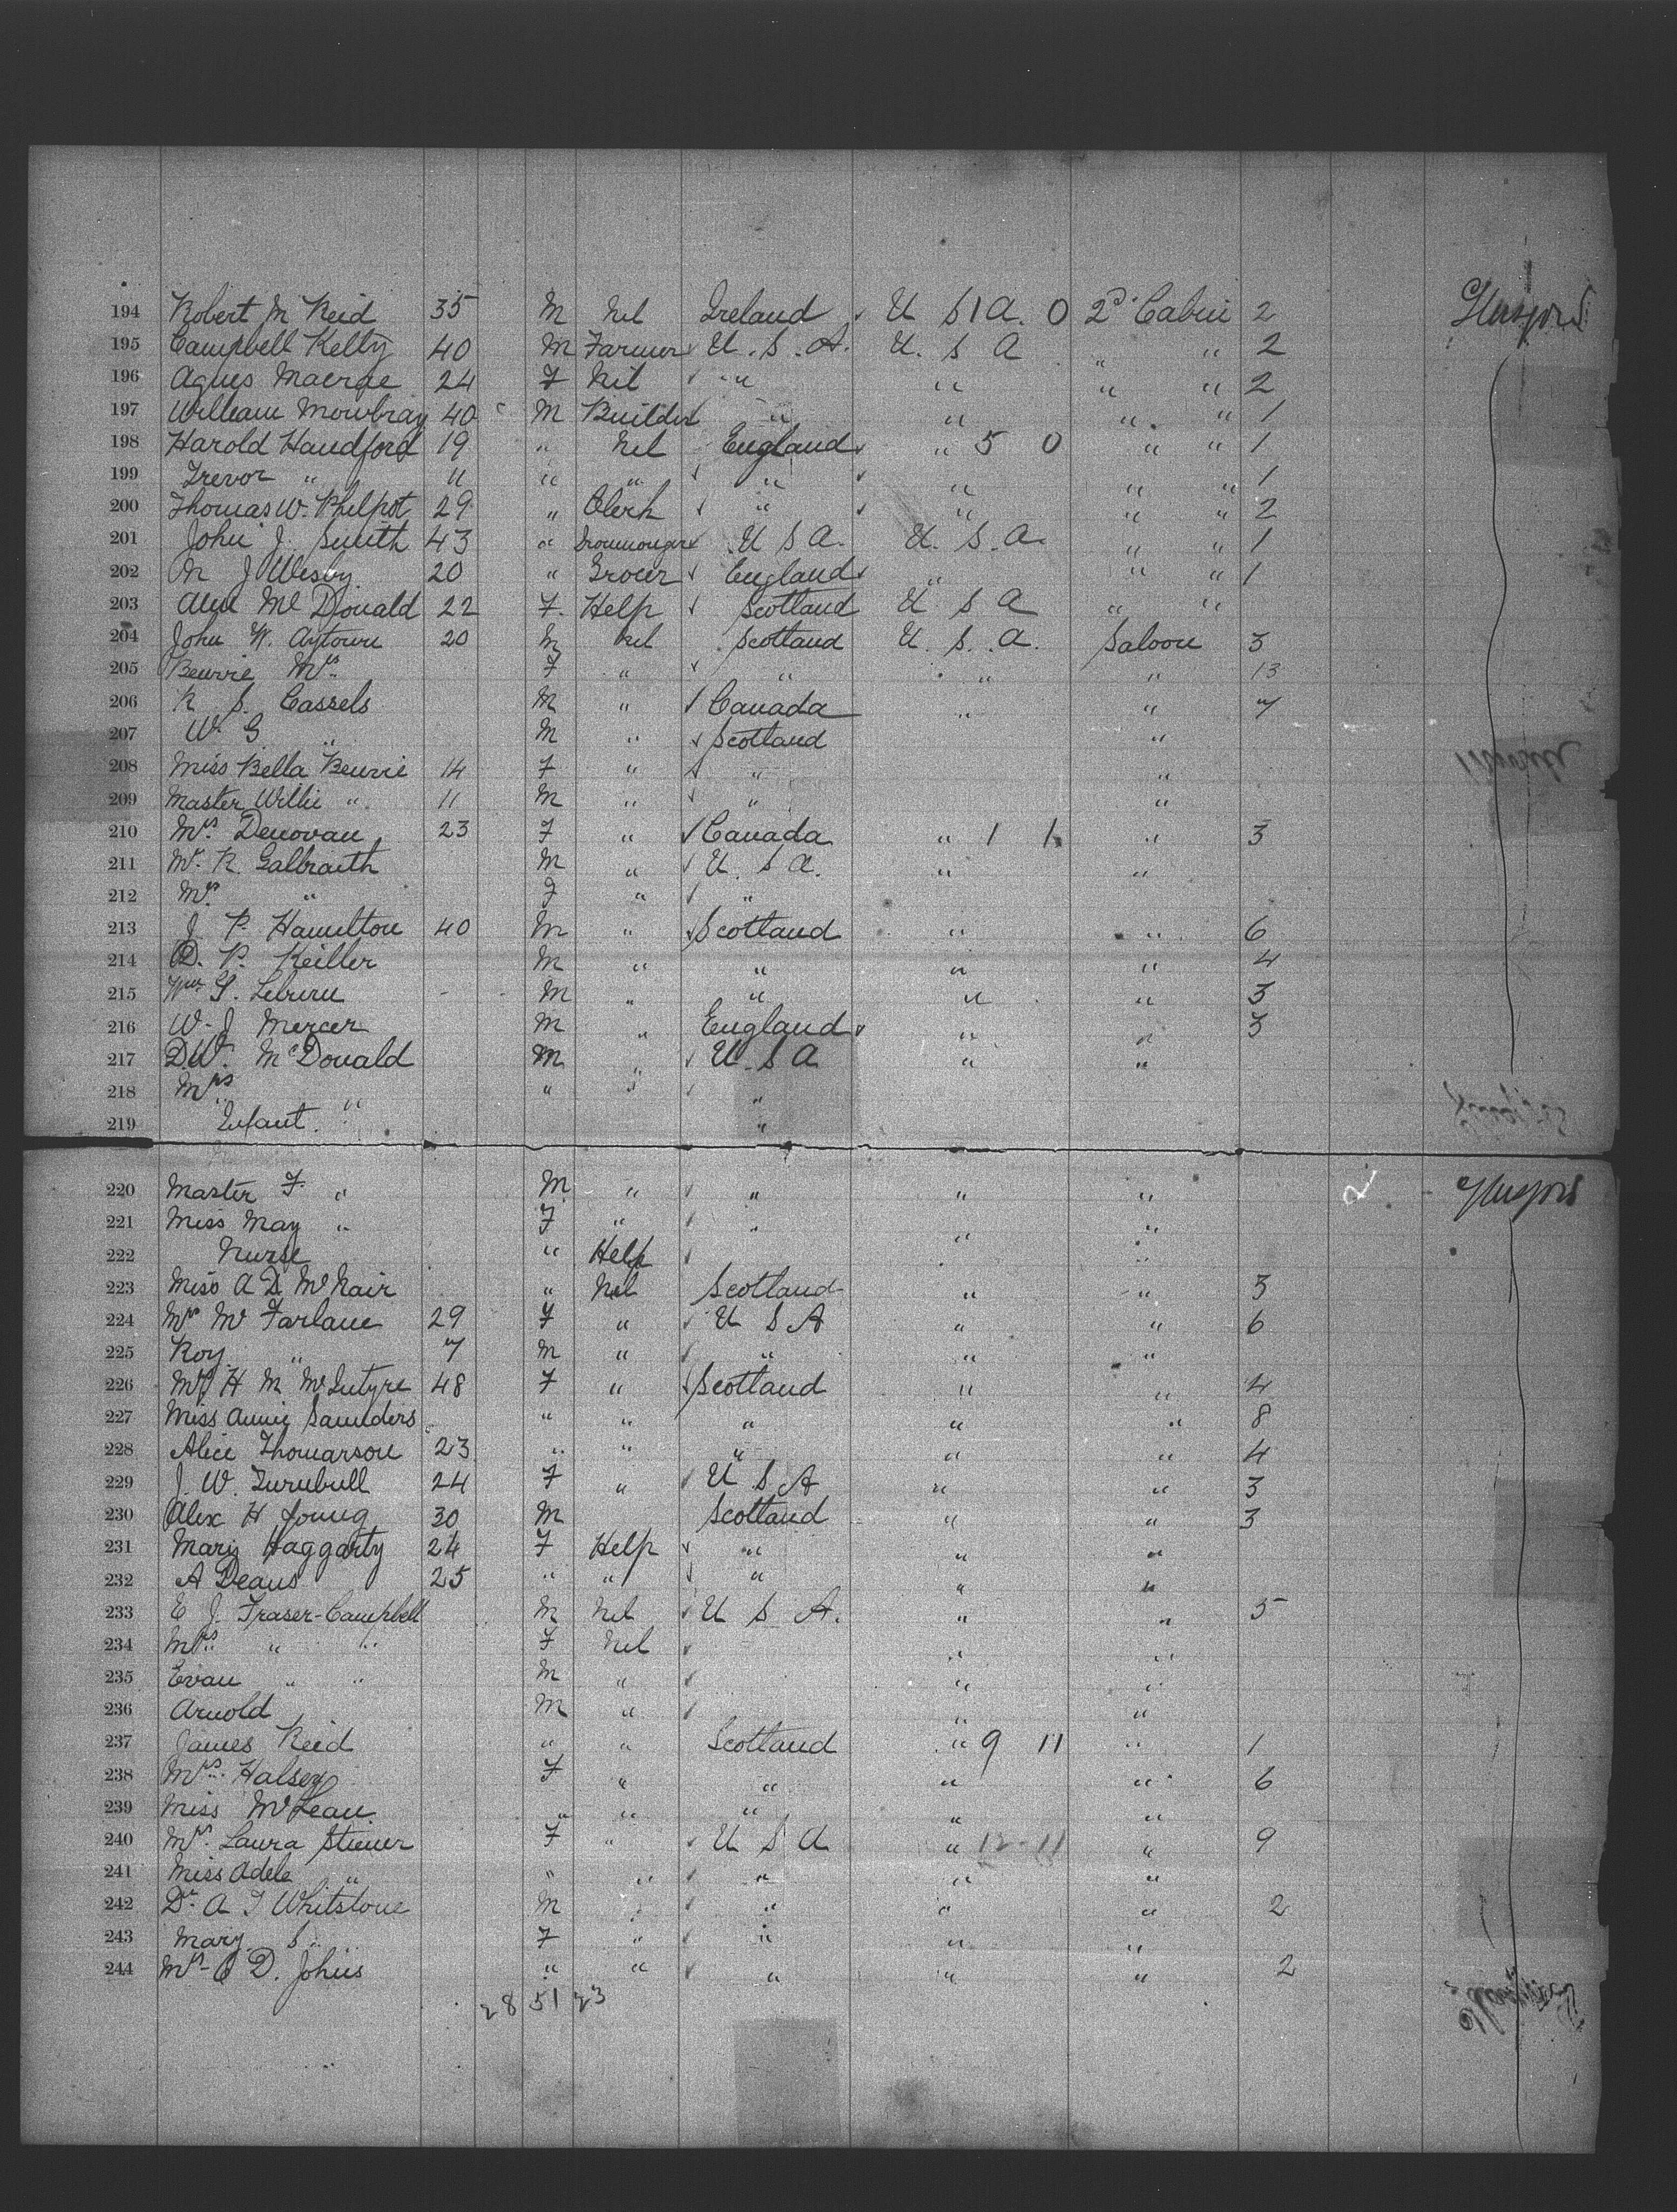 194 Robert M Reid 35 M Nil Ireland U S 1 A. 0 2d Cabin 2 Glasgow
195 Campbell Kelly 40 M Farmer U.S.A. U. S A " " 2
196 Agnes Macrae 24 F Nil " " " " 2
197 William Mowbray 40 M Builder " " " " 1
198 Harold Handford 19 " Nil England " 5 0 " " 1
199 Trevor " 11 " " " " " " 1
200 Thomas W. Philpot 29 " Clerk " " " " 2
201 John J. Smith 43 " Ironmonger U S A. U. S. A. " " 1
202 M J Wesley 20 " Grocer England " " " 1
203 Alex Mc Donald 22 F. Help Scotland U S A " "
204 John W. Aytoun 20 M Nil Scotland U. S. A. Saloon 3
205 Mrs. F " " " " 13
206 R S. Cassels M " Canada " " 7
207 W. G " M " Scotland "
208 Miss Bella 14 F " " "
209 Master Willie " 11 M " " "
210 Mrs. Denovan 23 F " Canada " 1 1 " 3
211 Mr. R. Galbraith M " U. S A. " "
212 Mrs. " F " "
213 J. P. Hamilton 40 M " Scotland " " 6
214 D. P. Keiller M " " " " 4
215 Wm G. M " " " " 3
216 W. J Mercer M " England " " 3
217 D.W. McDonald M " U. S A " "
218 Mrs " " " "
219 Infant. " "
220 Master F. " M " " " "
221 Miss May " F " " " "
222 Nurse " Help "
223 Miss A D. McNair " Nil Scotland " " 3
224 Mrs McFarlane 29 F " U S A " " 6
225 Roy " 7 M " " " "
226 Mrs H M McIntyre 48 F " Scotland " " 4
227 Miss Annie Saunders " " " " " 8
228 Alice Thomarson 23 " " " " " 4
229 J. W. Turnbull 24 F " U S A " " 3
230 Alex H Young 30 M Scotland " " 3
231 Mary Haggarty 24 F Help " " "
232 A Deans 25 " " " " "
233 E J. Fraser-Campbell M Nil U S A. " " 5
234 Mrs " " F Nil " "
235 Evan " " M " " "
236 Arnold M " " "
237 James Reid " " Scotland " 9 11 " 1
238 Mrs. Halsey F " " " " 6
239 Miss McLean " " " " "
240 Mrs. Laura F " U S A " 12 11 " 9
241 Miss Adele " " " " " "
242 Dr. A T Whitstone M " " " " 2
243 Mary S. " F " " " "
244 Mrs C D. Johns " " " " " 2
28 51 23